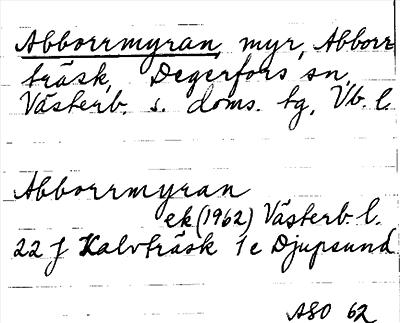 Abborrmyran, myr, Abborr
träsk, Degerfors sn,
Västerb. s. doms. tg, Vb. l.
Abborrmyran
ek (1962) Västerb. l.
22 J Kalvträsk 1e Djupsund
ASO 62